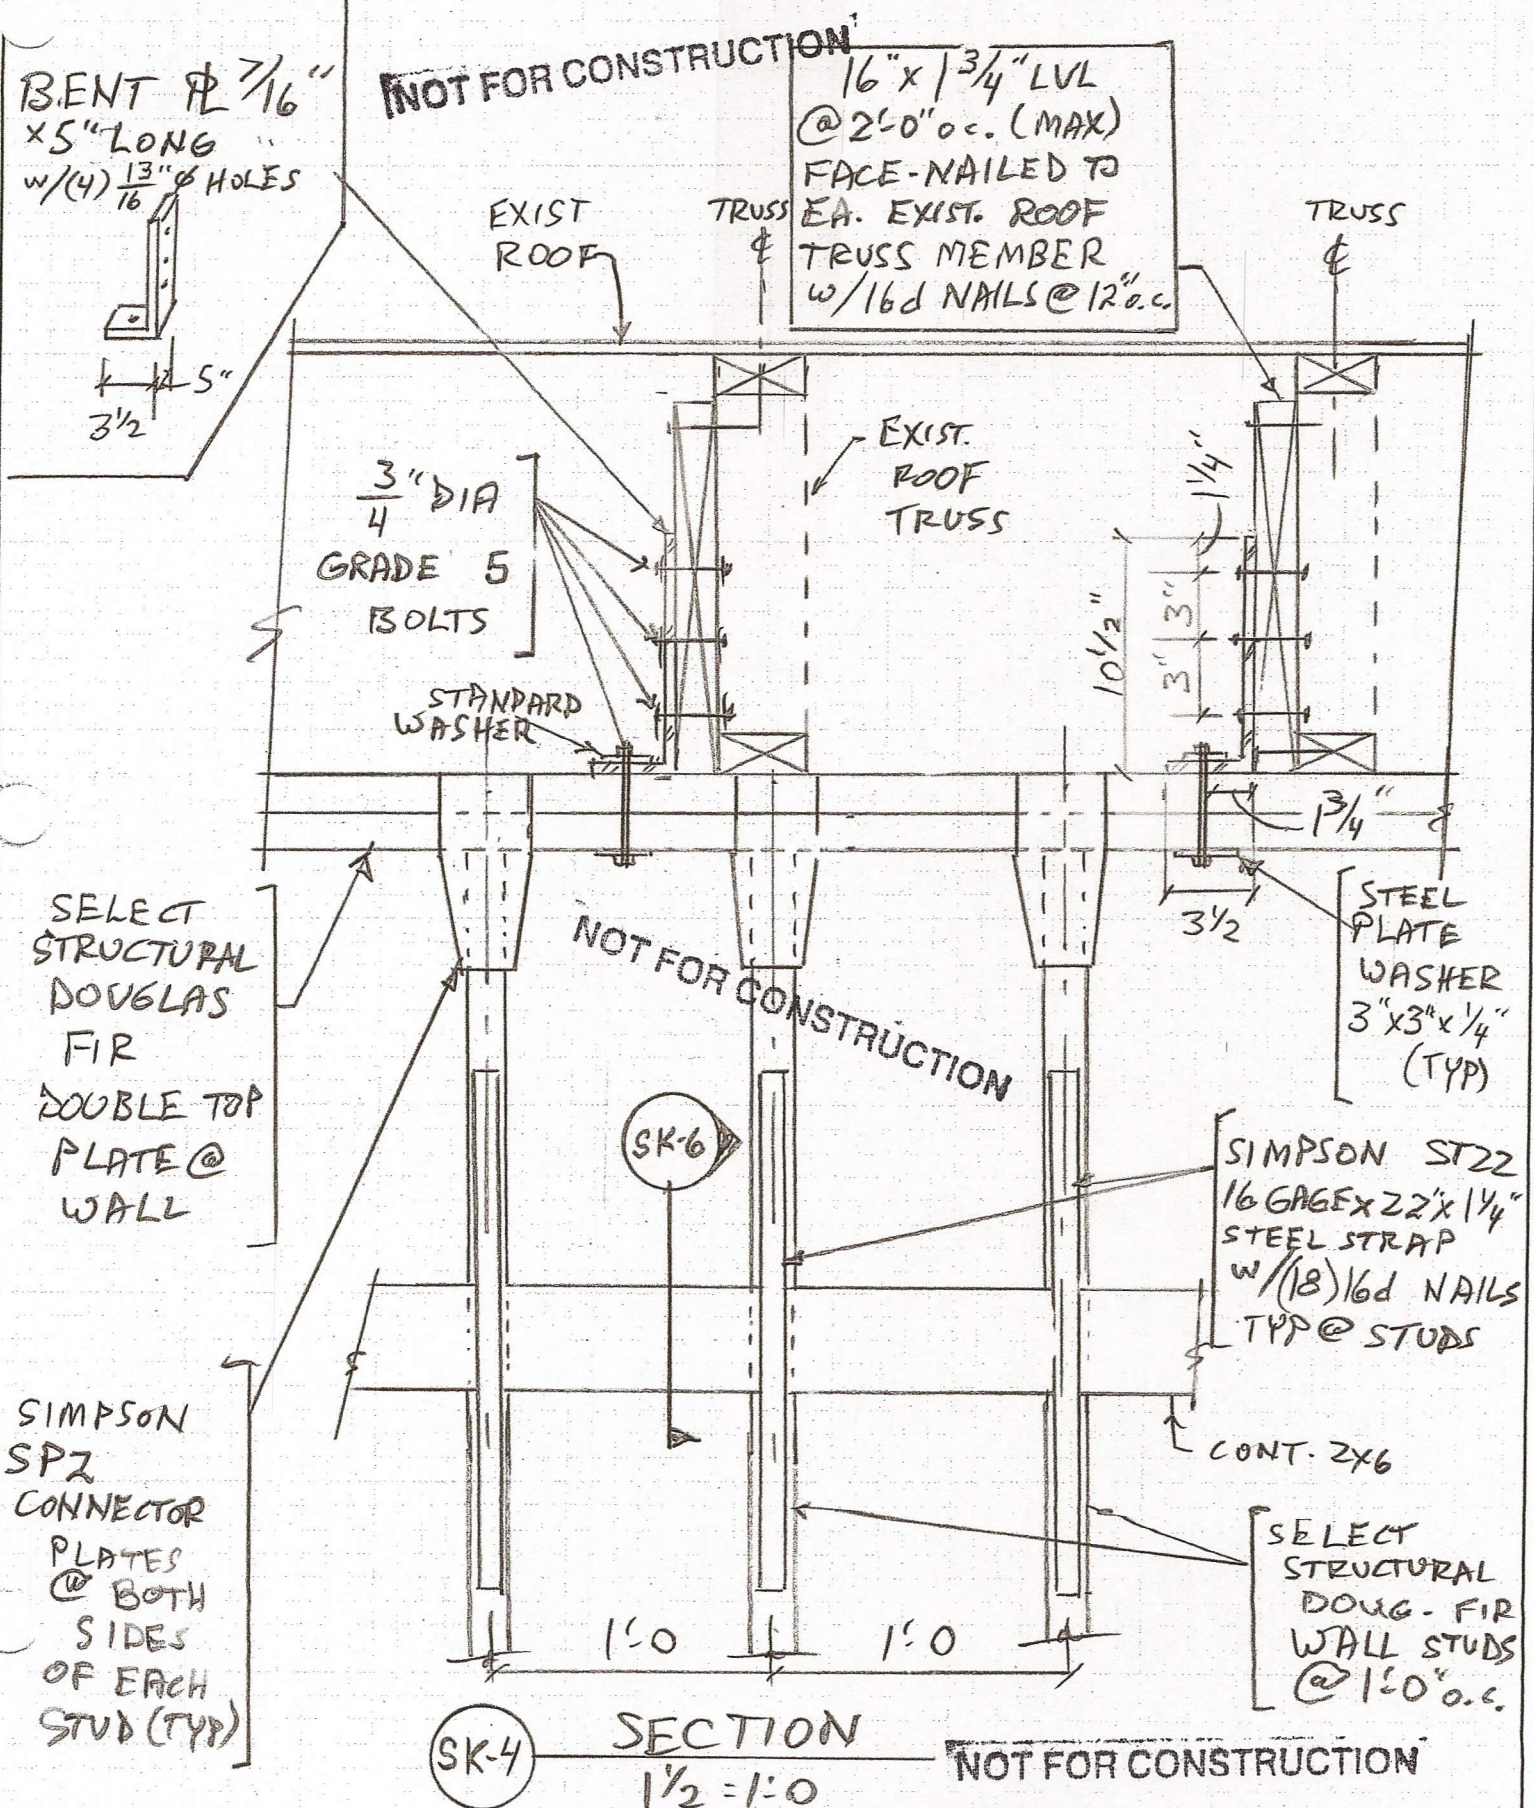 NOT FOR CONSTRUCTION
BENT PL 7/16"
x 5" LONG
w/(4) 13/16" ⌀ HOLES
5"
3 1/2
16" x 1 3/4" LVL
@ 2'-0" o.c. (MAX)
FACE-NAILED TO
EA. EXIST. ROOF
TRUSS MEMBER
w/16d NAILS @ 12" o.c.
EXIST
ROOF
TRUSS
℄
TRUSS
℄
3/4" DIA
GRADE 5
BOLTS
EXIST.
ROOF
TRUSS
1 1/4"
10 1/2"
3"
3"
STANDARD
WASHER
1 3/4"
3 1/2
STEEL
PLATE
WASHER
3"x3"x1/4"
(TYP)
SELECT
STRUCTURAL
DOUGLAS
FIR
DOUBLE TOP
PLATE @
WALL
NOT FOR CONSTRUCTION
SK-6
SIMPSON ST22
16 GAGE x 22" x 1 1/4"
STEEL STRAP
w/(18) 16d NAILS
TYP @ STUDS
SIMPSON
SP2
CONNECTOR
PLATES
@ BOTH
SIDES
OF EACH
STUD (TYP)
CONT. 2x6
SELECT
STRUCTURAL
DOUG. FIR
WALL STUDS
@ 1'-0" o.c.
1'-0
1'-0
SK-4
SECTION
1 1/2 = 1'-0
NOT FOR CONSTRUCTION